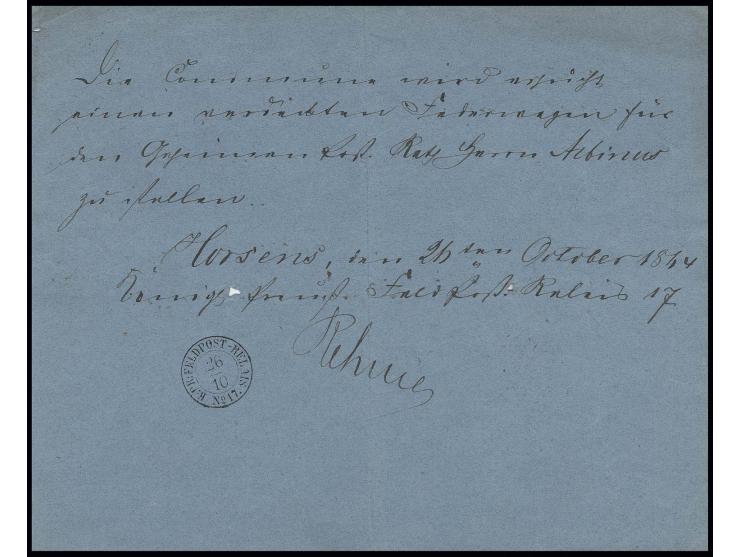 Die Commune wird ersucht
einen verdeckten Federwagen für
den Geheimen Post Rath Herrn Albinus
zu stellen.
Horsens, den 26ten October 1864
Königl. Preuß. Feld Post-Relais 17
Rehme
K.PR.FELDPOST-RELAIS No 17.
26
10